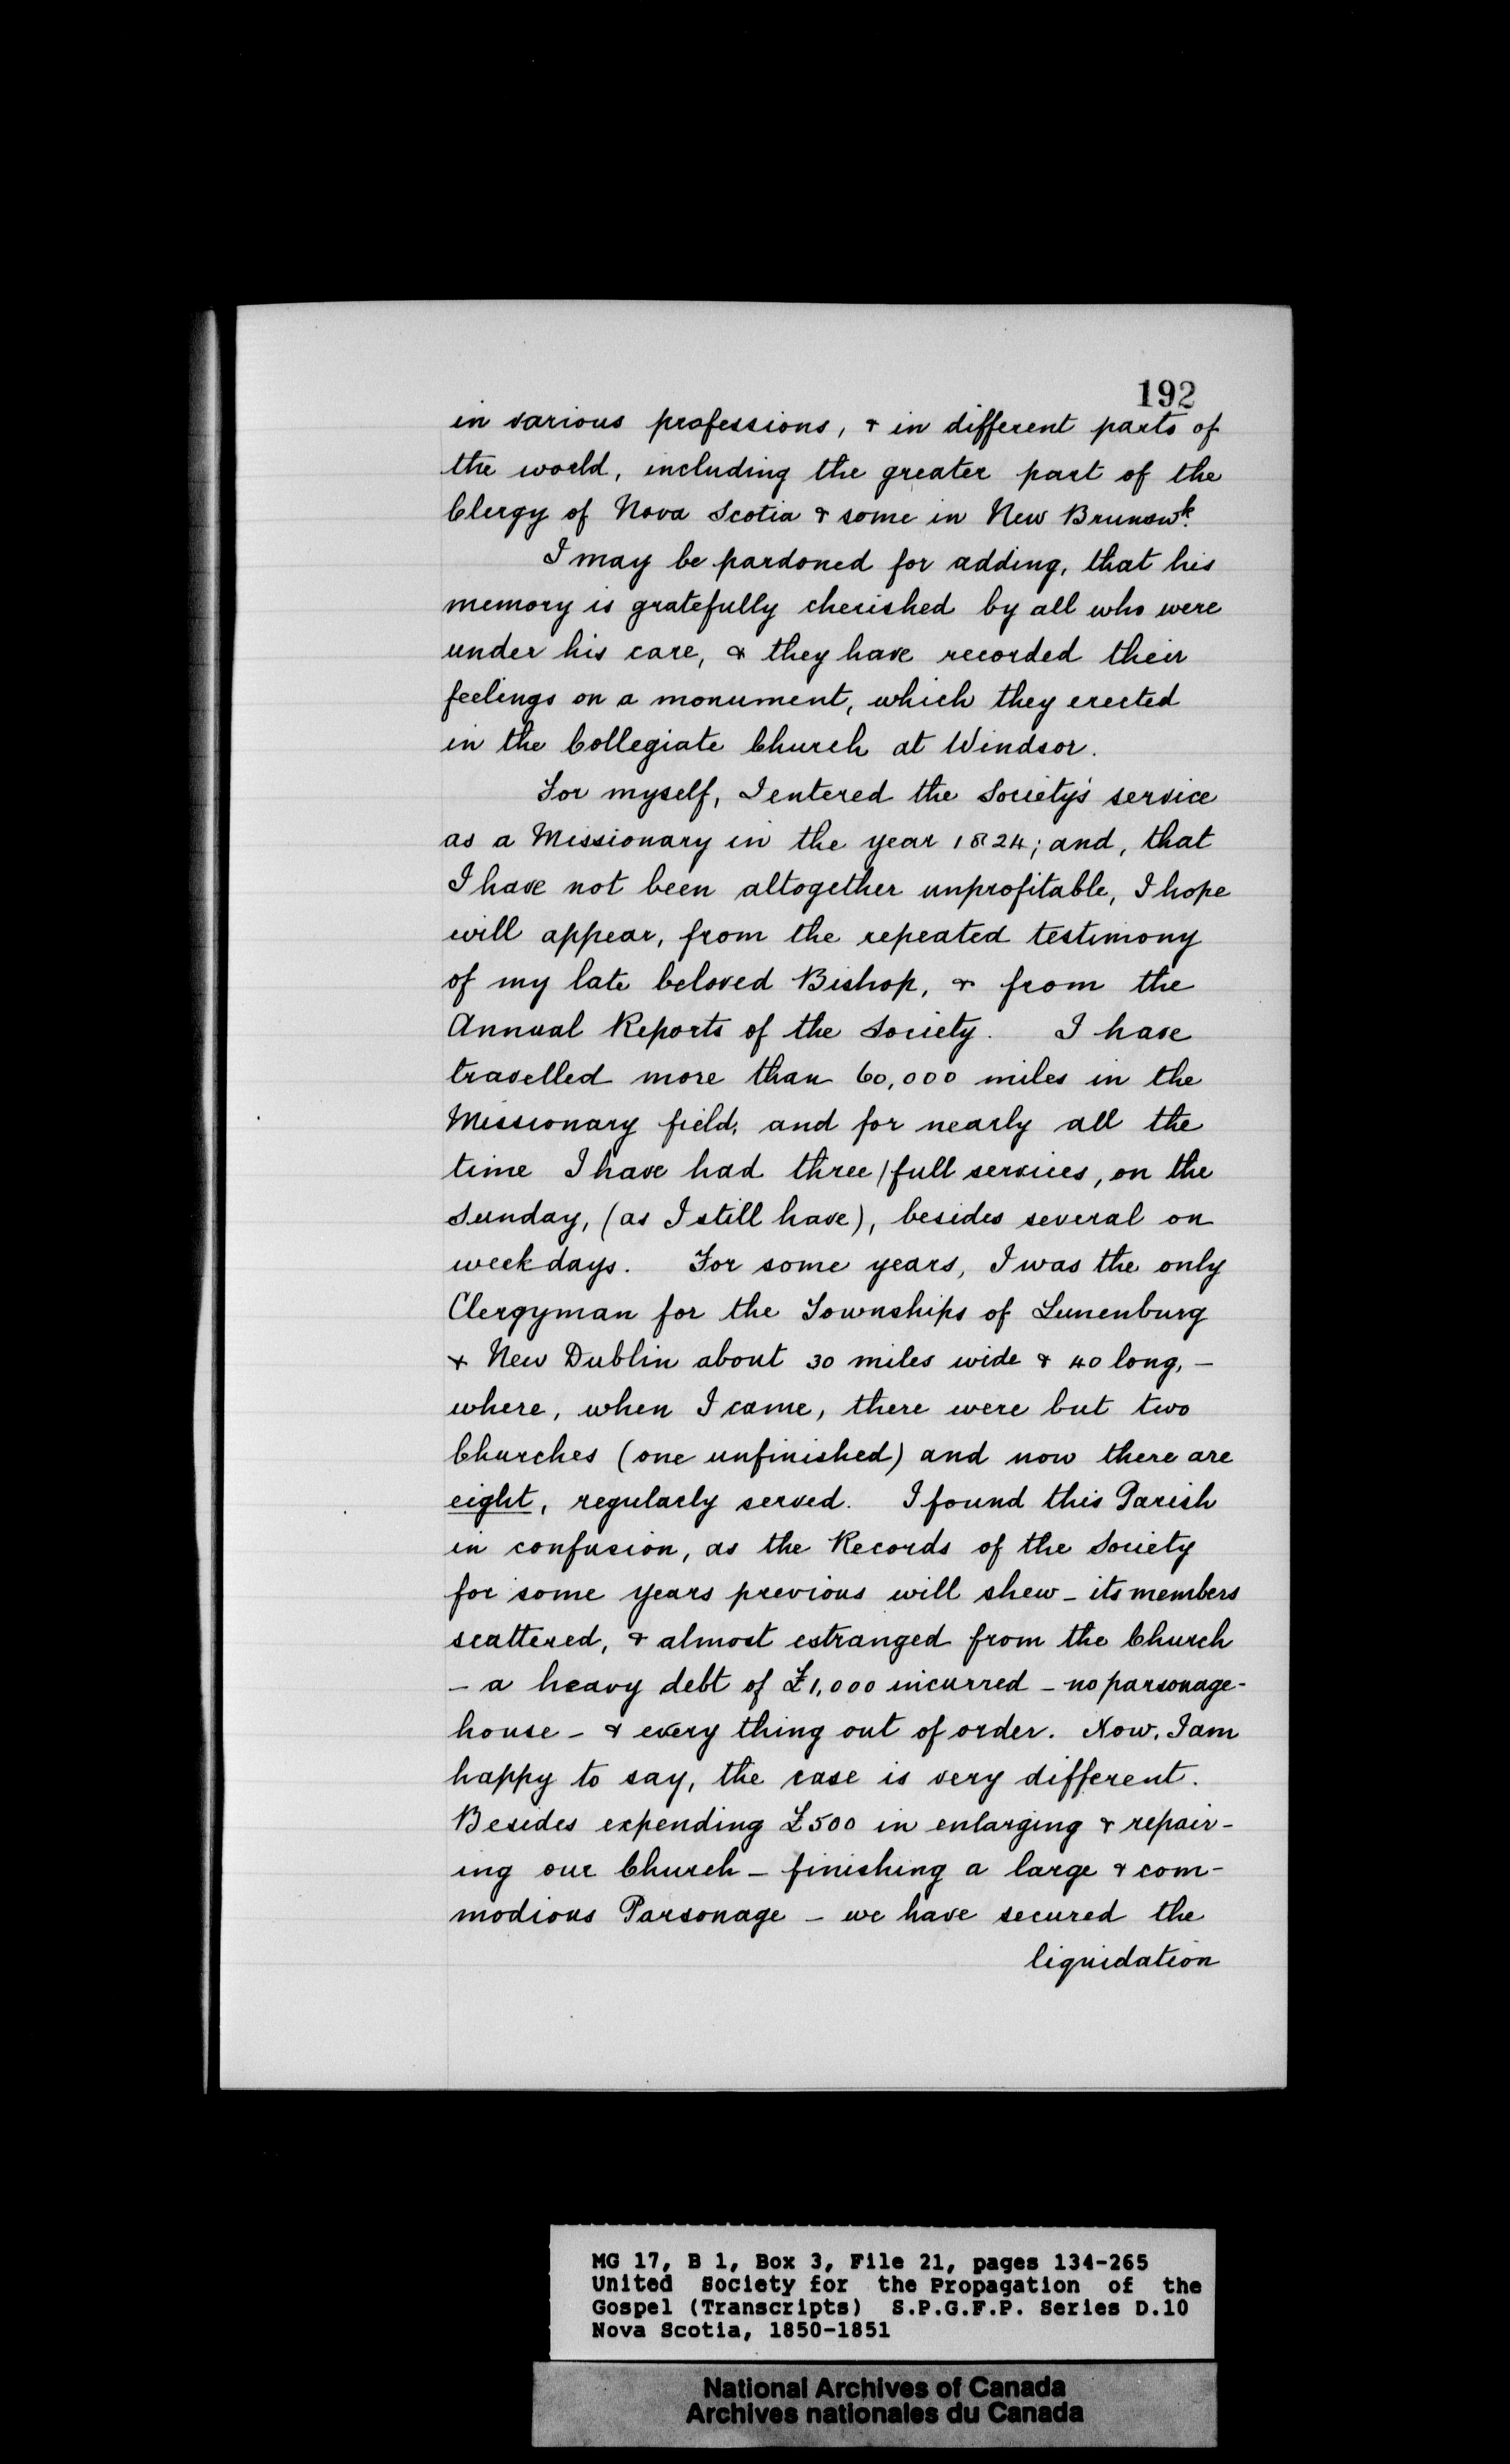 192
in various professions, & in different parts of
the world, including the greater part of the
Clergy of Nova Scotia & some in New Brunswk.
I may be pardoned for adding, that his
memory is gratefully cherished by all who were
under his care, & they have recorded their
feelings on a monument, which they erected
in the Collegiate Church at Windsor.
For myself, I entered the Society's service
as a Missionary in the year 1824; and, that
I have not been altogether unprofitable, I hope
will appear, from the repeated testimony
of my late beloved Bishop, & from the
Annual Reports of the Society. I have
travelled more than 60,000 miles in the
Missionary field, and for nearly all the
time I have had three/full services, on the
Sunday, (as I still have), besides several on
week days. For some years, I was the only
Clergyman for the Townships of Lunenburg
& New Dublin about 30 miles wide & 40 long, –
where, when I came, there were but two
Churches (one unfinished) and now there are
eight, regularly served. I found this Parish
in confusion, as the Records of the Society
for some years previous will shew – its members
scattered, & almost estranged from the Church
– a heavy debt of £1,000 incurred – no parsonage-
house – & every thing out of order. Now, I am
happy to say, the case is very different.
Besides expending £500 in enlarging & repair-
ing our Church – finishing a large & com-
modious Parsonage – we have secured the
liquidation
MG 17, B 1, Box 3, File 21, pages 134-265
United Society for the Propagation of the
Gospel (Transcripts) S.P.G.F.P. Series D.10
Nova Scotia, 1850-1851
National Archives of Canada
Archives nationales du Canada